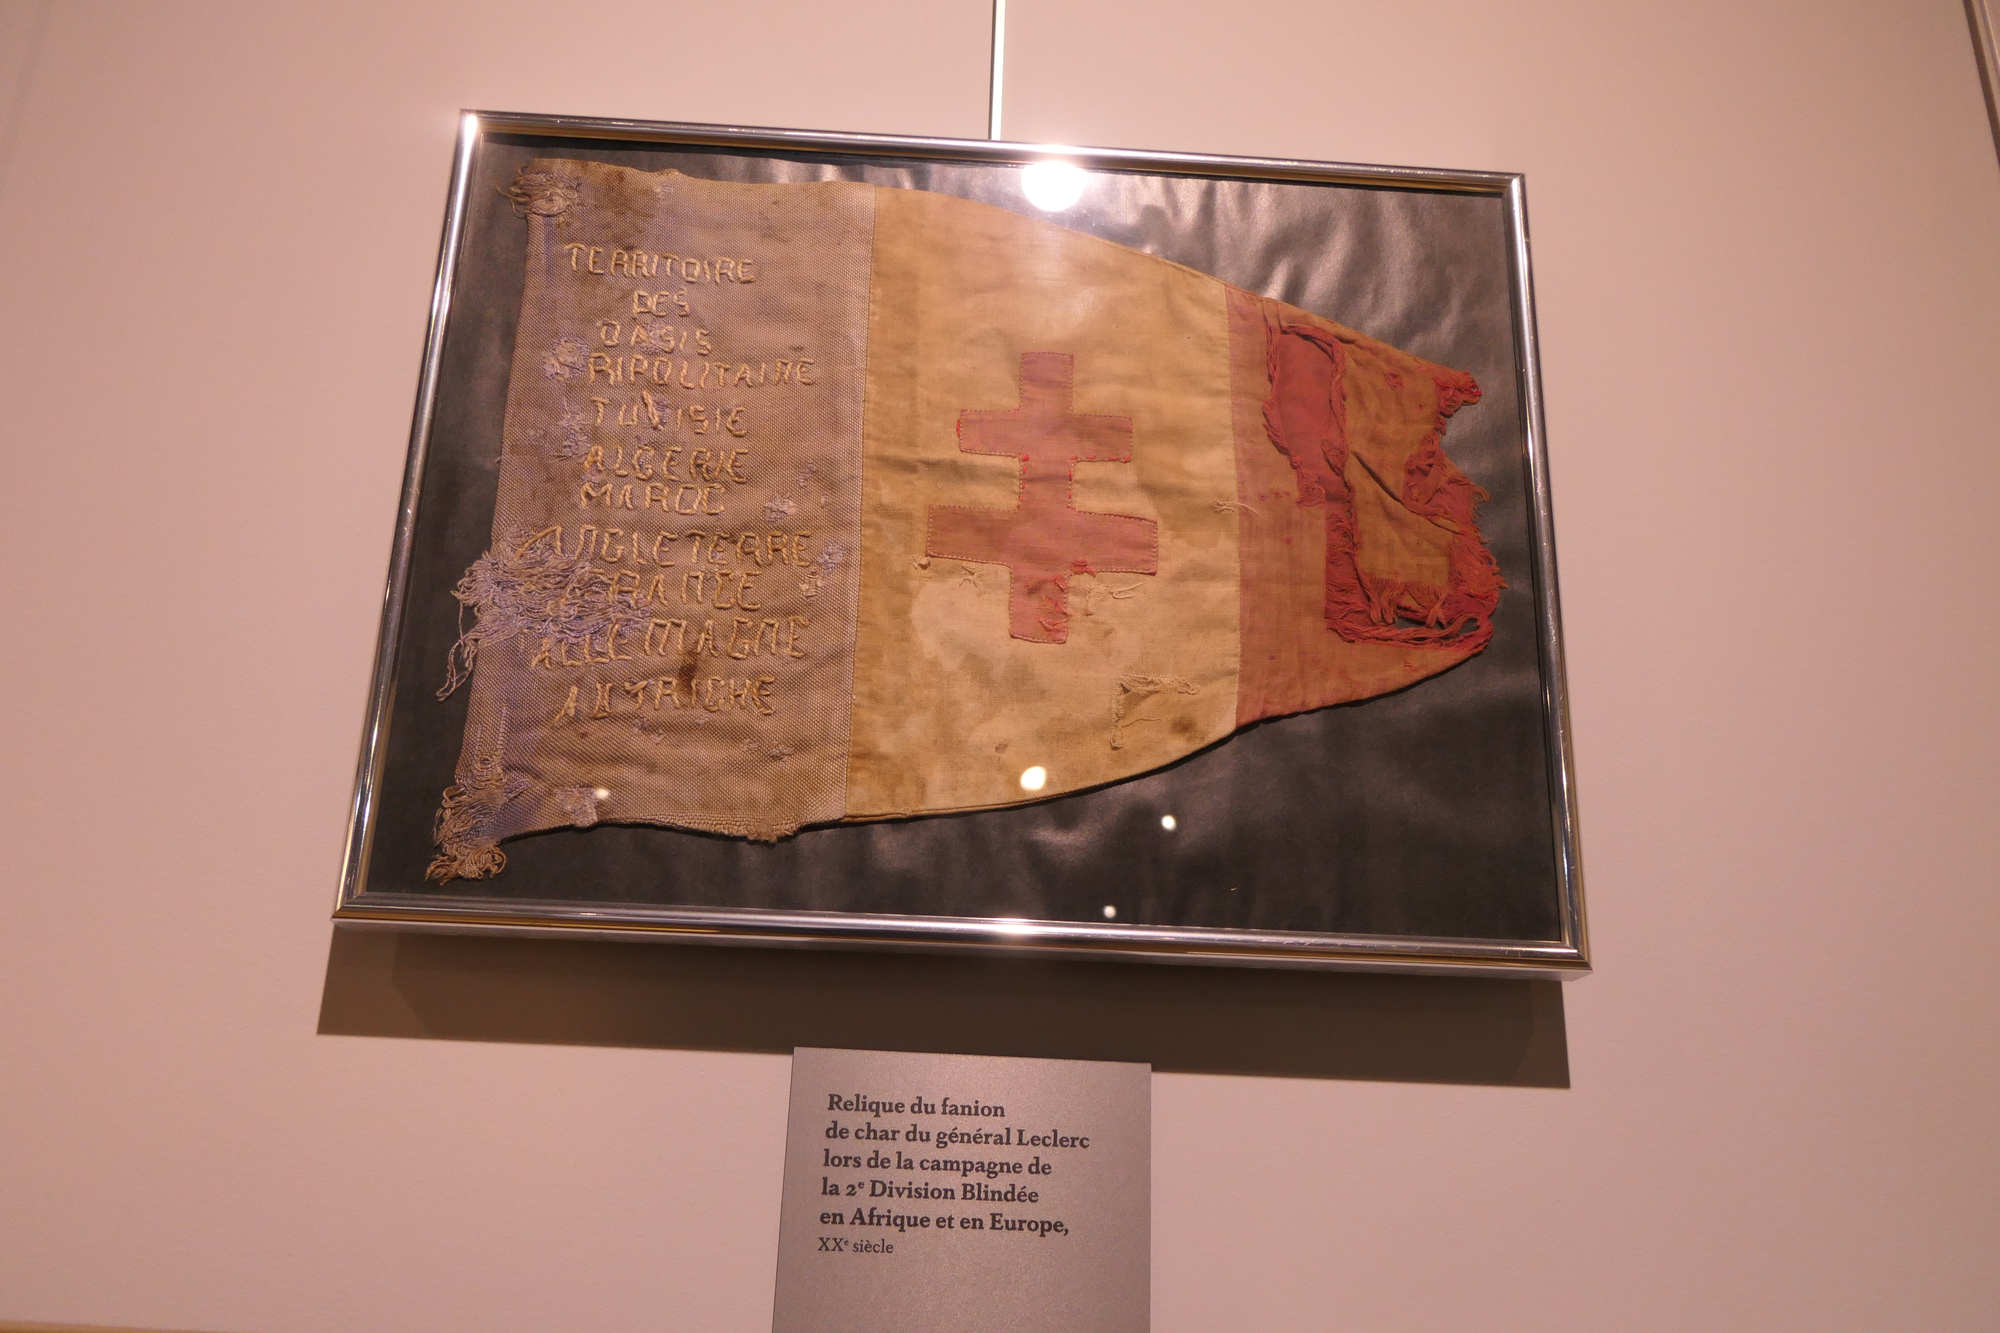 TERRITOIRE
DES
OASIS
RIPOLITAINE
TUNISIE
ALGERIE
MAROC
ANGLETERRE
FRANCE
ALLEMAGNE
AUTRICHE
Relique du fanion
de char du général Leclerc
lors de la campagne de
la 2e Division Blindée
en Afrique et en Europe,
XXe siècle